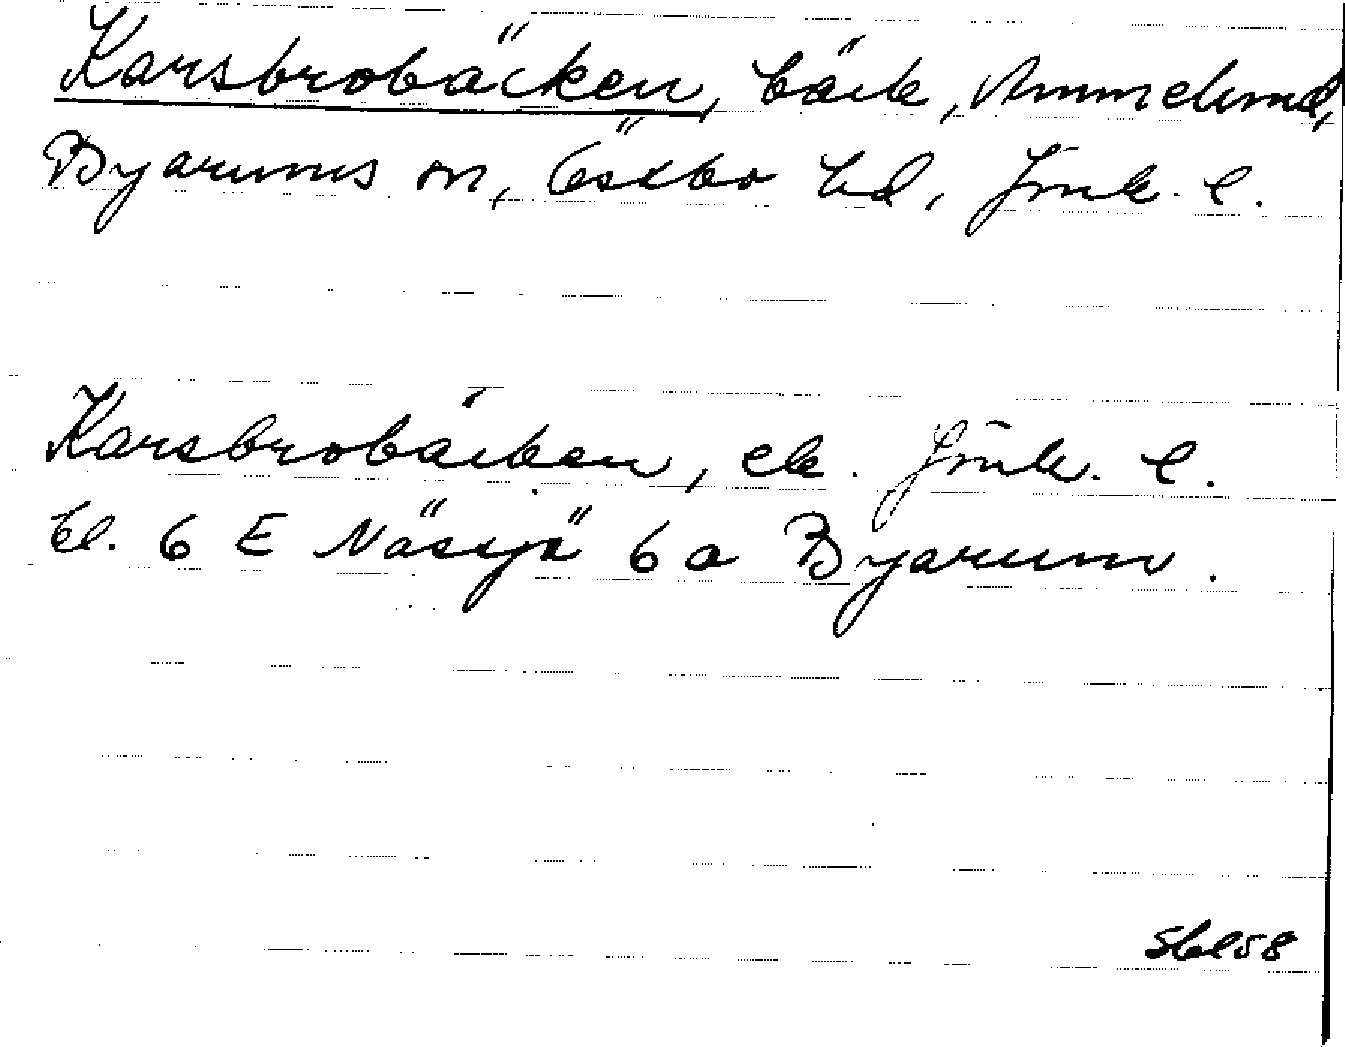 Karsbrobäcken, bäck,
Byarums sn, Östbo hd, Jönk. l.
Karsbrobäcken, ek. Jönk. l.
bl. 6 E Nässjö 6 a Byarum.